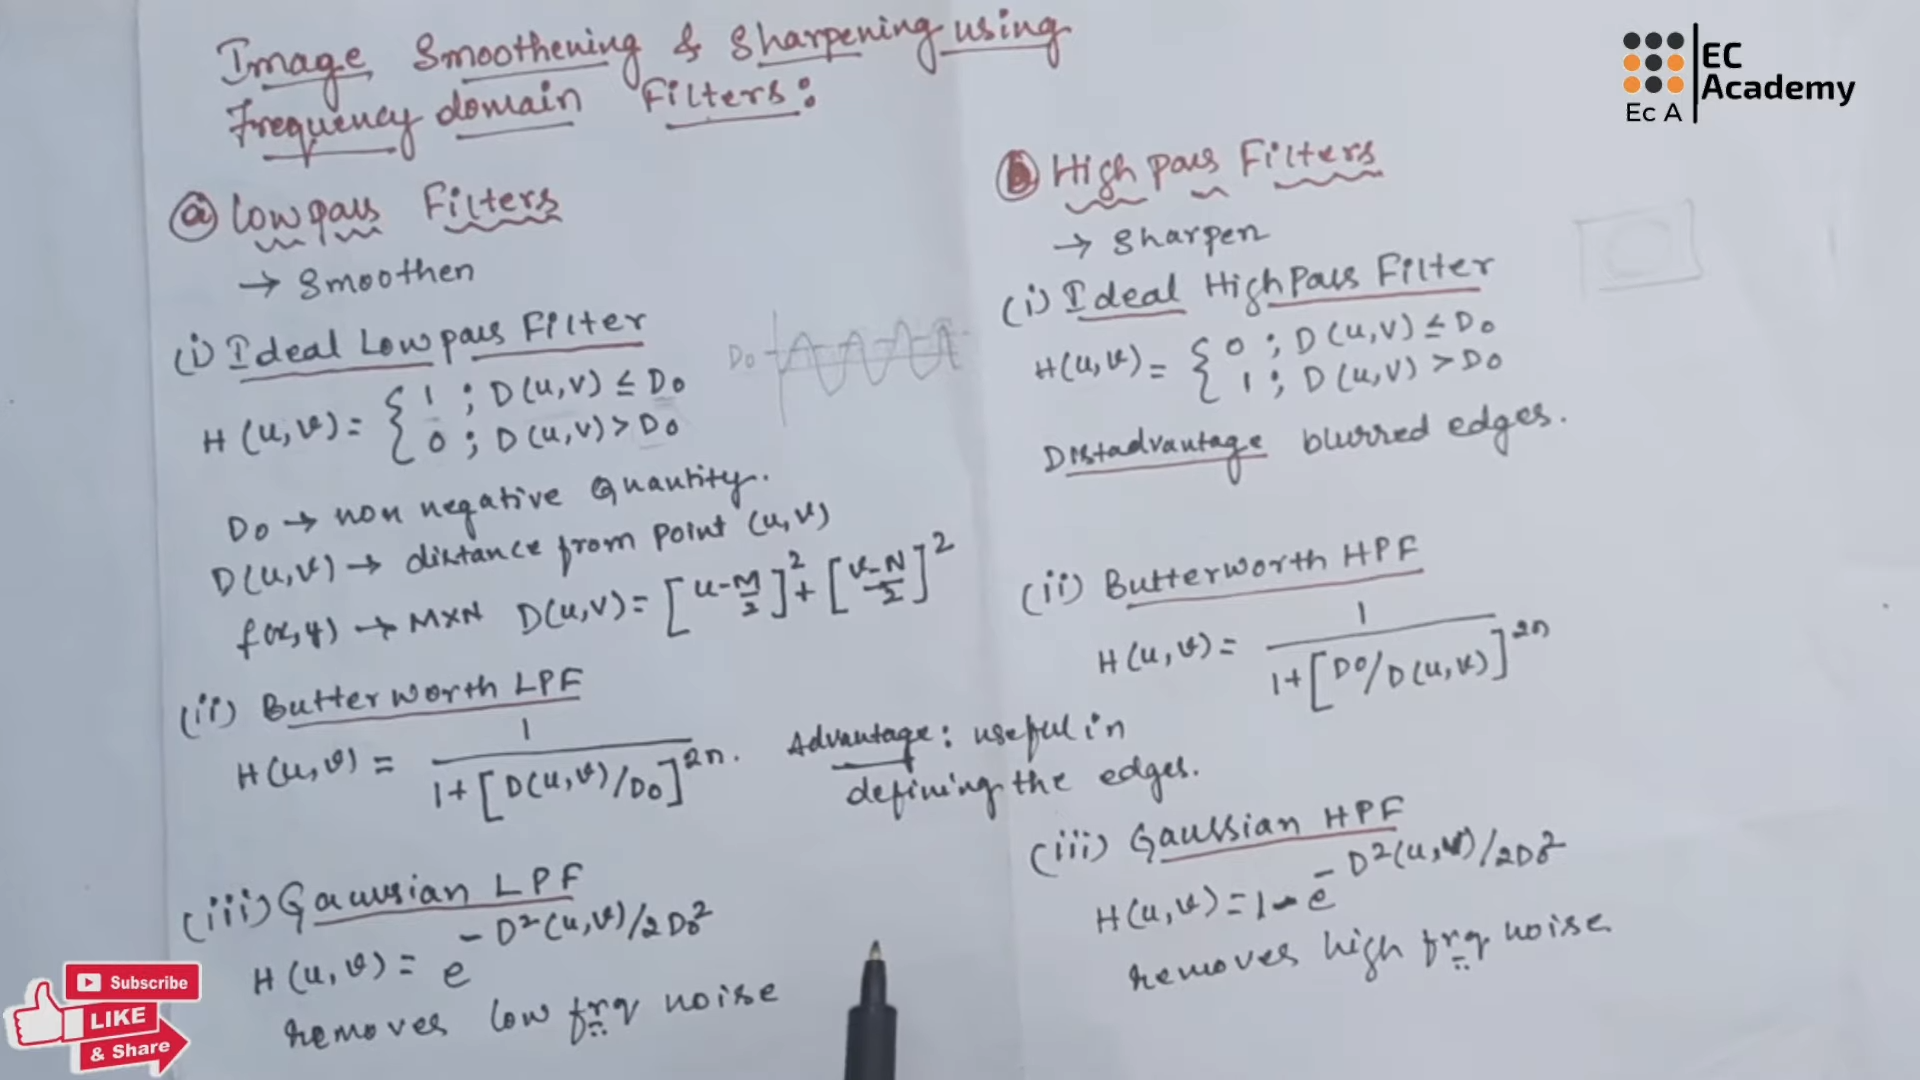 Image Smoothening & Sharpening using
Frequency domain Filters:
EC
Academy
Ec A
(a) Lowpass Filters
→ Smoothen
(i) Ideal Lowpass Filter
H(u,v) = { 1 ; D(u,v) ≤ D0
0 ; D(u,v) > D0
D0
D0 → non negative Quantity.
D(u,v) → distance from point (u,v)
f(x,y) → MXN D(u,v) = [u-M/2]^2 + [v-N/2]^2
(ii) Butterworth LPF
H(u,v) = 1 / 1+[D(u,v)/D0]^2n.
Advantage: useful in
defining the edges.
(iii) Gaussian LPF
H(u,v) = e^-D^2(u,v)/2D0^2
removes low frq noise
(b) High pass Filters
→ Sharpen
(i) Ideal High Pass Filter
H(u,v) = { 0 ; D(u,v) ≤ D0
1 ; D(u,v) > D0
Distadvantage blurred edges.
(ii) Butterworth HPF
H(u,v) = 1 / 1+[D0/D(u,v)]^2n
(iii) Gaussian HPF
H(u,v) = 1-e^-D^2(u,v)/2D0^2
removes high frq noise
Subscribe
LIKE
& Share